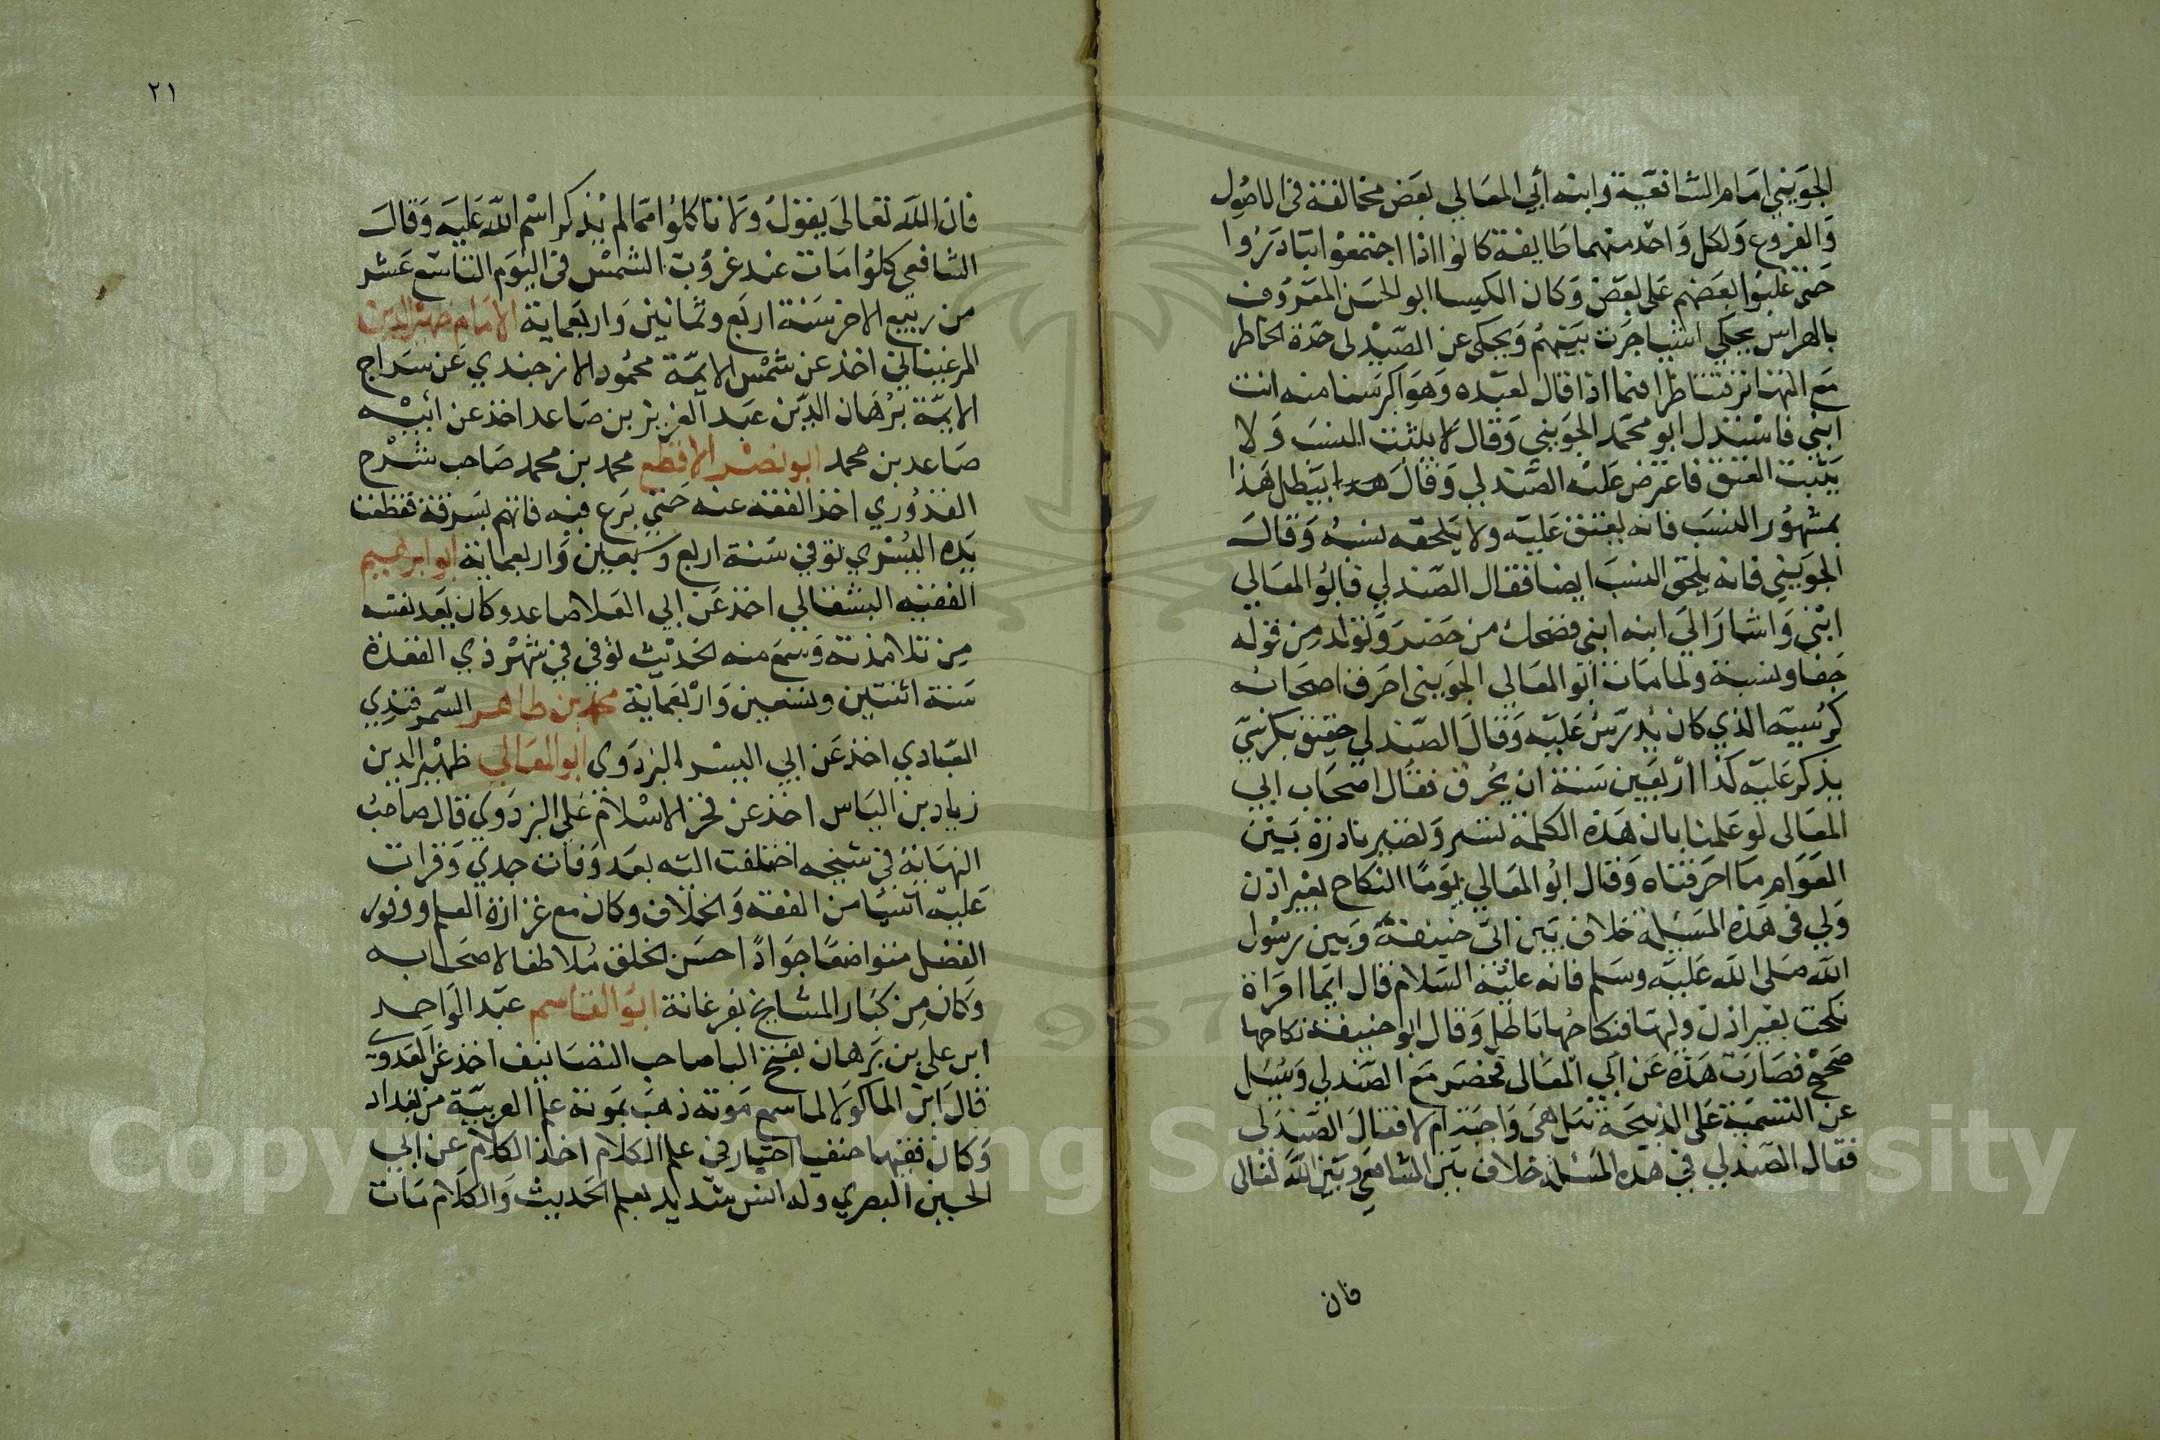 الجويني امام الشافعية وابنه أبي المعالي بعض مخالفة في الاصول
والفروع ولكل واحد منهما طايفة كانوا اذا اجتمعوا تبادروا
حتى غلبوا بعضهم على بعض وكان الكيسا ابو الحسن المعروف
بالهراس يحكي اشيا جرت بينهم ويحكى عن الصندلي حدة الخاطر
مع انهما تناظرا فيما اذا قال لعبده وهو اكبر سنا منه انت
ابني فاستدل ابو محمد الجويني وقال لا يثبت النسب ولا
يثبت العتق فاعترض عليه الصندلي وقال هذا يبطل هذا
بمشهور النسب فانه يعتق عليه ولا يلحقه نسبه وقال
الجويني فانه يلحق النسب ايضا فقال الصندلي فابو المعالي
ابني واشار الى ابنه ابني فضحك من حضر وتولد من قوله
جفا ونسبة ولما مات أبو المعالي الجويني احرق اصحابه
كرسيه الذي كان يدرس عليه وقال الصندلي حقيق بكرسي
يذكر عليه كذا اربعين سنة ان يحرق فقال اصحاب ابي
المعالى لو علمنا بان هذه الكلمة تسير وتصير نادرة بين
العوام ما احرقناه وقال ابو المعالي يوما النكاح بغير اذن
ولي في هذه المسيلة خلاف بين ابي حنيفة وبين رسول
الله صلى الله عليه وسلم فانه عليه السلام قال ايما امراة
نكحت بغير اذن وليها فنكاحها باطل وقال ابو حنيفة نكاحها
صحيح فصارت هذه عن ابي المعالى فحضر مع الصندلي وسيل
عن التسمية على الذبيحة هل هي واجبة ام لا فقال الصندلى
فقال الصندلي في هذه المسلة خلاف بين الشافعي وبين الله تعالى
فان
٢١
فان الله تعالى يقول ولا تاكلوا مما لم يذكر اسم الله عليه وقال
الشافعي كلوا مات عند غروب الشمس في اليوم التاسع عشر
من ربيع الاخر سنة اربع وثمانين واربعماية الامام ظهير الدين
المرغيناني اخذ عن شمس الايمة محمود الازجندي عن سراج
الايمة برهان الدين عبد العزيز بن صاعد اخذ عن ابيه
صاعد بن محمد ابو نصر الاقطع محمد بن محمد صاحب شرح
القدوري اخذ الفقه عنه حتى برع فيه فاتهم بسرقة فقطعت
يده اليسرى توفي سنة اربع وسبعين واربعماية ابو ابراهيم
الفقيه اخذ عن ابي العلا صاعد وكان يعد نفسه
من تلامذته وسمع منه الحديث توفي في شهر ذي القعدة
سنة اثنتين وتسعين واربعماية محمد بن طاهر السمرقندي
العبادي اخذ عن ابي اليسر البزدوى أبو المعالي ظهير الدين
زياد بن الياس اخذ عن فخر الاسلام علي البزدوي قال صاحب
النهاية في شيخه اختلفت اليه بعد وفات جدي وقرات
عليه اشيا من الفقه والخلاف وكان مع غزازة العلم ووفور
الفضل متواضعا جوادا حسن الخلق ملاطفا لاصحابه
وكان من كبار المشايخ بفرغانة ابو القاسم عبد الواحد
ابن على بن برهان بفتح البا صاحب التصانيف اخذ عن القدوري
قال ابن الماكولا لما سمع موته ذهب بموته علم العربية من بغداد
وكان فقيها حنفيا اختيار في علم الكلام اخذ الكلام عن ابي
الحسين البصري وله انس شديد بعلم الحديث والكلام مات
Copyright © King Saud University
1957